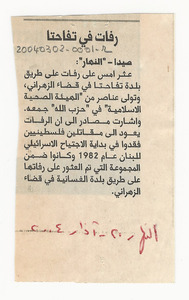 رفات في تفاحتا
20040302-0001-2
صيدا – "النهار":
عثر امس على رفات على طريق
بلدة تفاحتا في قضاء الزهراني،
وتولى عناصر من "الهيئة الصحية
الاسلامية" في "حزب الله" جمعه.
واشارت مصادر الى ان الرفات
يعود الى مقاتلين فلسطينيين
فقدوا في بداية الاجتياح الاسرائيلي
للبنان عام 1982 وكانوا ضمن
المجموعة التي تم العثور على رفاتها
على طريق بلدة الغسانية في قضاء
الزهراني.
النهار ٢ - آذار ٢٠٠٤